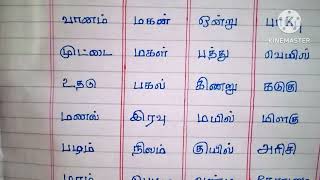 வானம் மகன் ஒன்று
முட்டை மகள் பத்து வெயில்
உதடு பகல் கிணறு கடுகு
மணல் இரவு மயில் மிளகு
படிம் நிலம் குயில் அரிசி
KINEMASTER